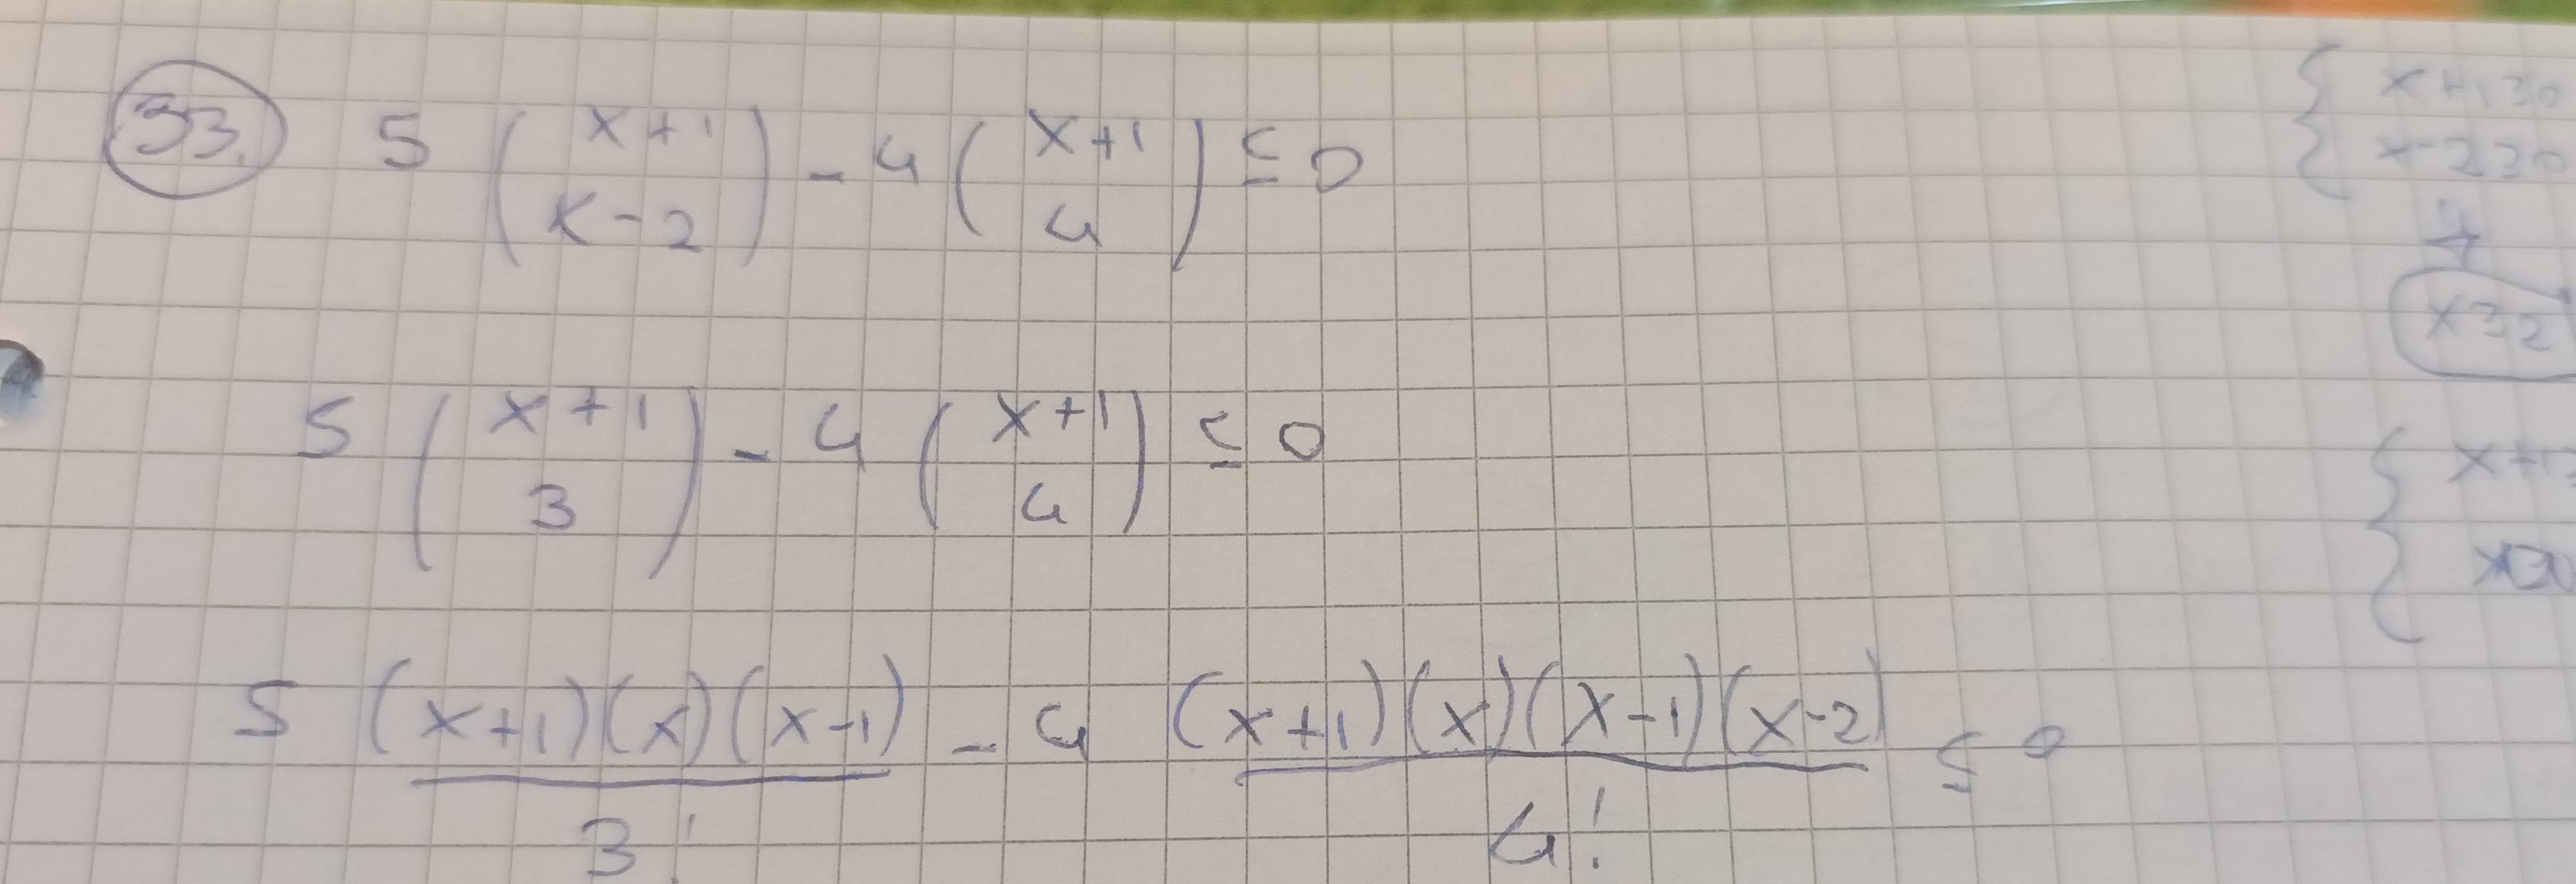 33. 5 (x+1 / x-2) - 4 (x+1 / 4) ≤ 0
{ x+1≥0
x-2≥0
x≥2
5 (x+1 / 3) - 4 (x+1 / 4) ≤ 0
5 (x+1)(x)(x-1) / 3! - 4 (x+1)(x)(x-1)(x-2) / 4! ≤ 0